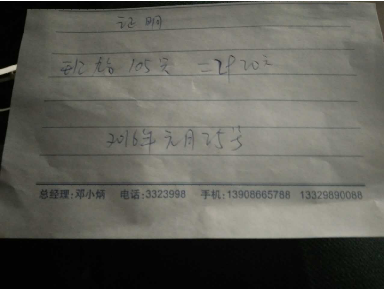 证明
105天 = 2420元
2016年元月25号
总经理:邓小炳 电话:3323998 手机:13908665788 13329890088